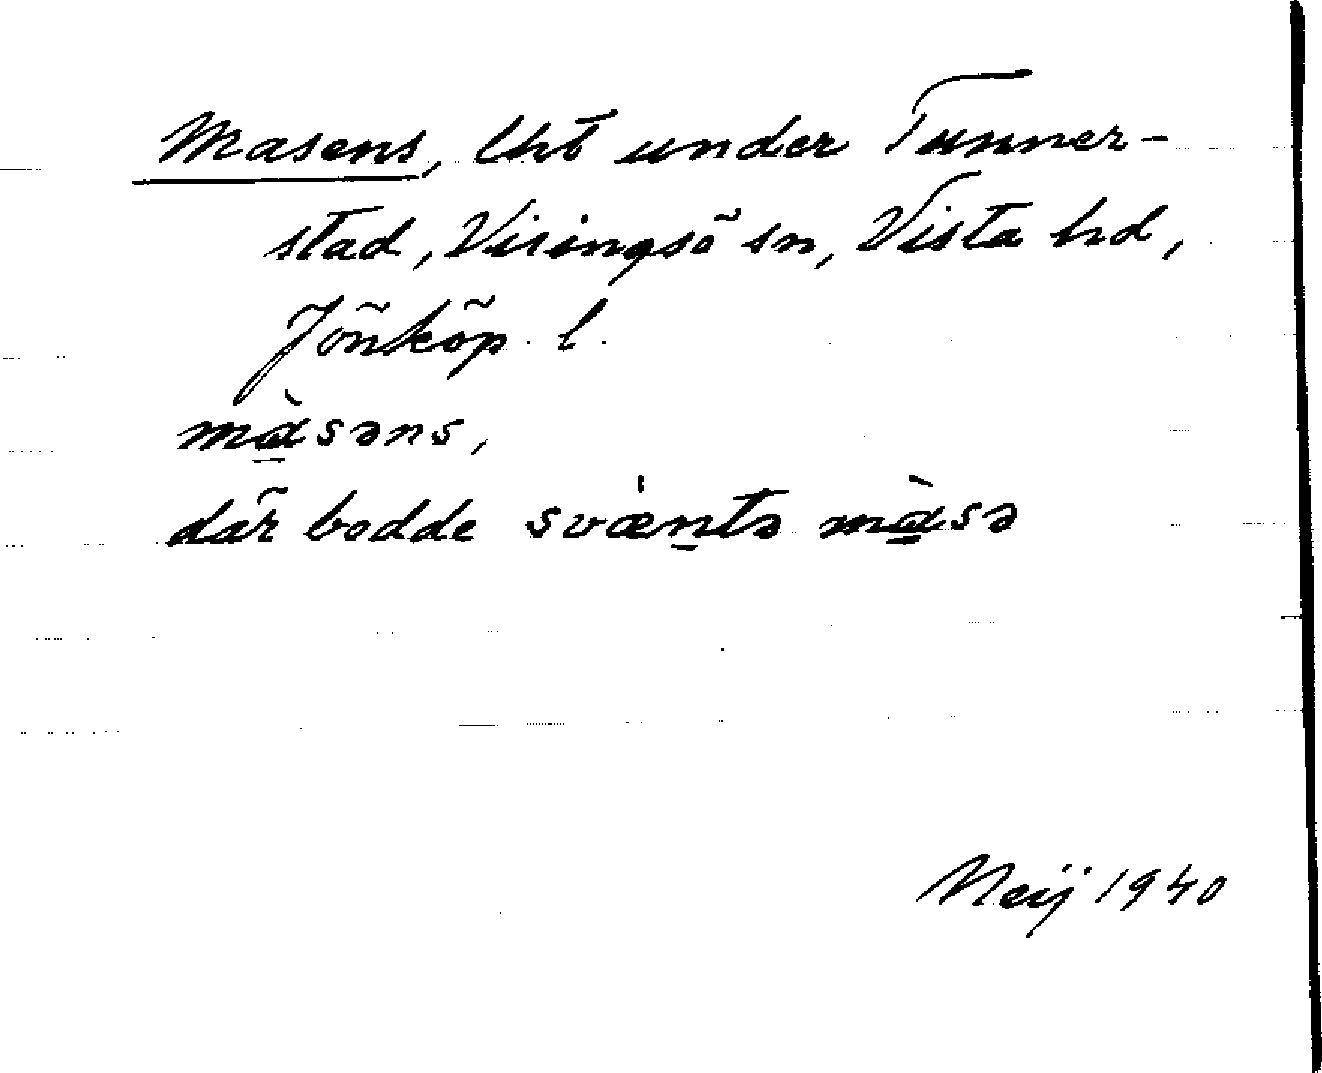 Masens, lht under Tunner-
stad, Visingsö sn, Vista hd,
Jönköp. l.
mɑ̠̀səns,
där bodde svæ̍n̠tə mɑ̠̀sə
Neij 1940